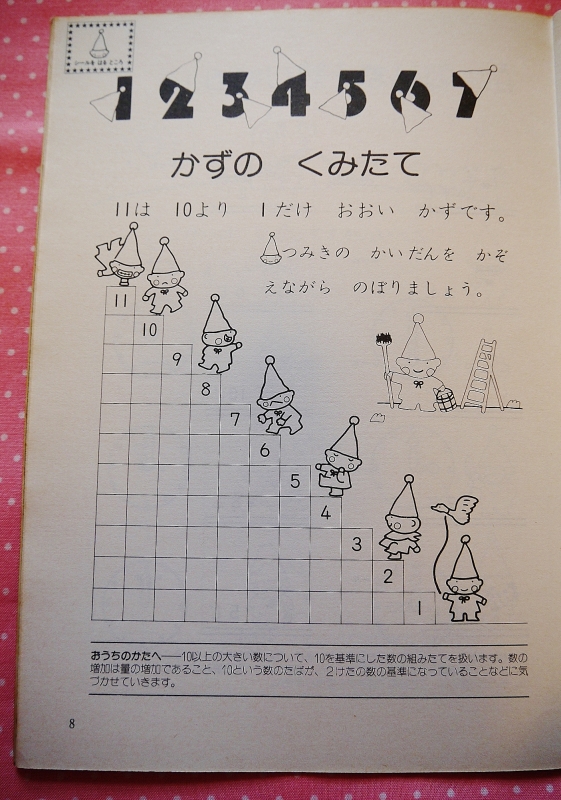 シールを はる ところ
1 2 3 4 5 6 7
かずの くみたて
11は 10より 1だけ おおい かずです。
つみきの かいだんを かぞ
えながら のぼりましょう。
11
10
9
8
7
6
5
4
3
2
1
おうちのかたへ——10以上の大きい数について、10を基準にした数の組みたてを扱います。数の
増加は量の増加であること、10という数のたばが、2けたの数の基準になっていることなどに気
づかせていきます。
8